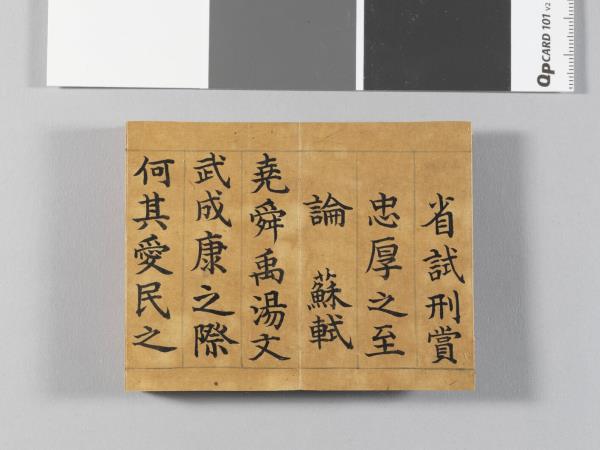 省試刑賞
忠厚之至
論 蘇軾
堯舜禹湯文
武成康之際
何其愛民之
QPCARD 101 v2